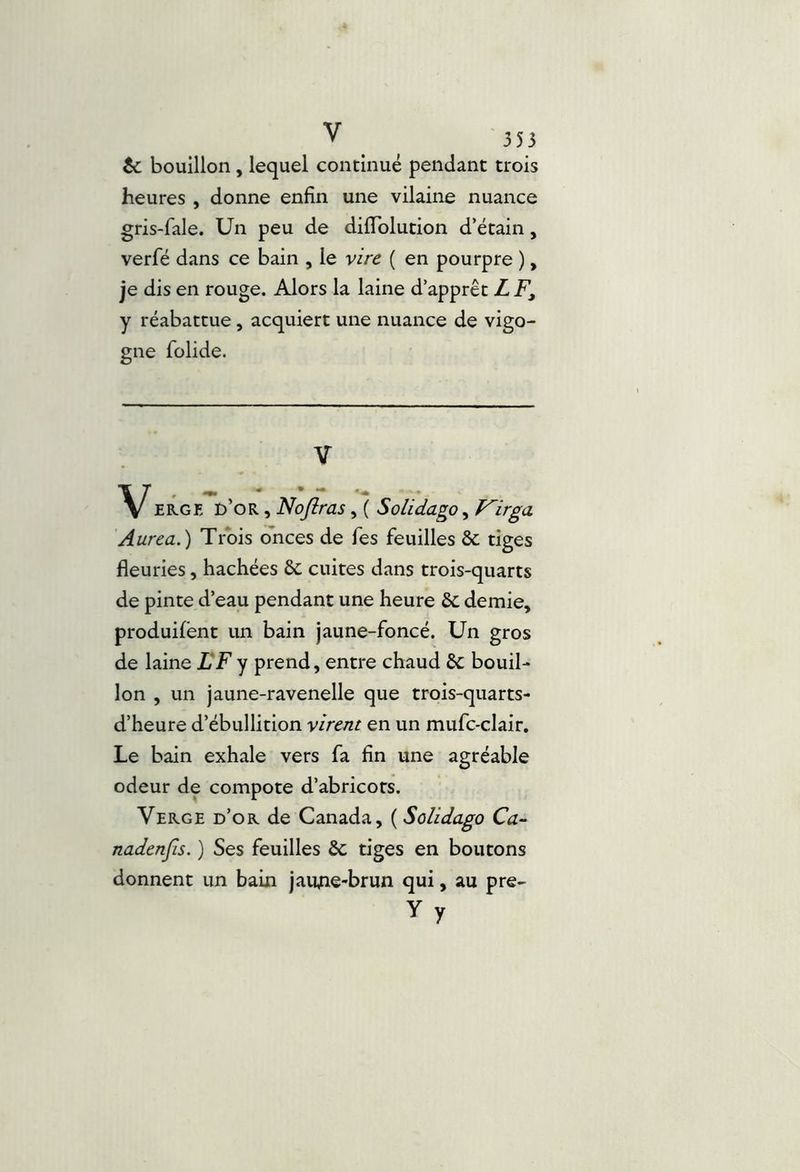 V 353
& bouillon, lequel continué pendant trois
heures, donne enfin une vilaine nuance
gris-ſale. Un peu de diſſolution d'étain,
verſé dans ce bain, le vire ( en pourpre ),
je dis en rouge. Alors la laine d'apprêt L F,
y réabattue, acquiert une nuance de vigo-
gne ſolide.
V
VERGE D'OR, Noſtras, ( Solidago, Virga
Aurea.) Trois onces de ſes feuilles & tiges
fleuries, hachées & cuites dans trois-quarts
de pinte d'eau pendant une heure & demie,
produiſent un bain jaune-foncé. Un gros
de laine L'F y prend, entre chaud & bouil-
lon, un jaune-ravenelle que trois-quarts-
d'heure d'ébullition virent en un muſc-clair.
Le bain exhale vers ſa fin une agréable
odeur de compote d'abricots.
VERGE D'OR de Canada, ( Solidago Ca-
nadenſis. ) Ses feuilles & tiges en boutons
donnent un bain jaune-brun qui, au pre-
Y y